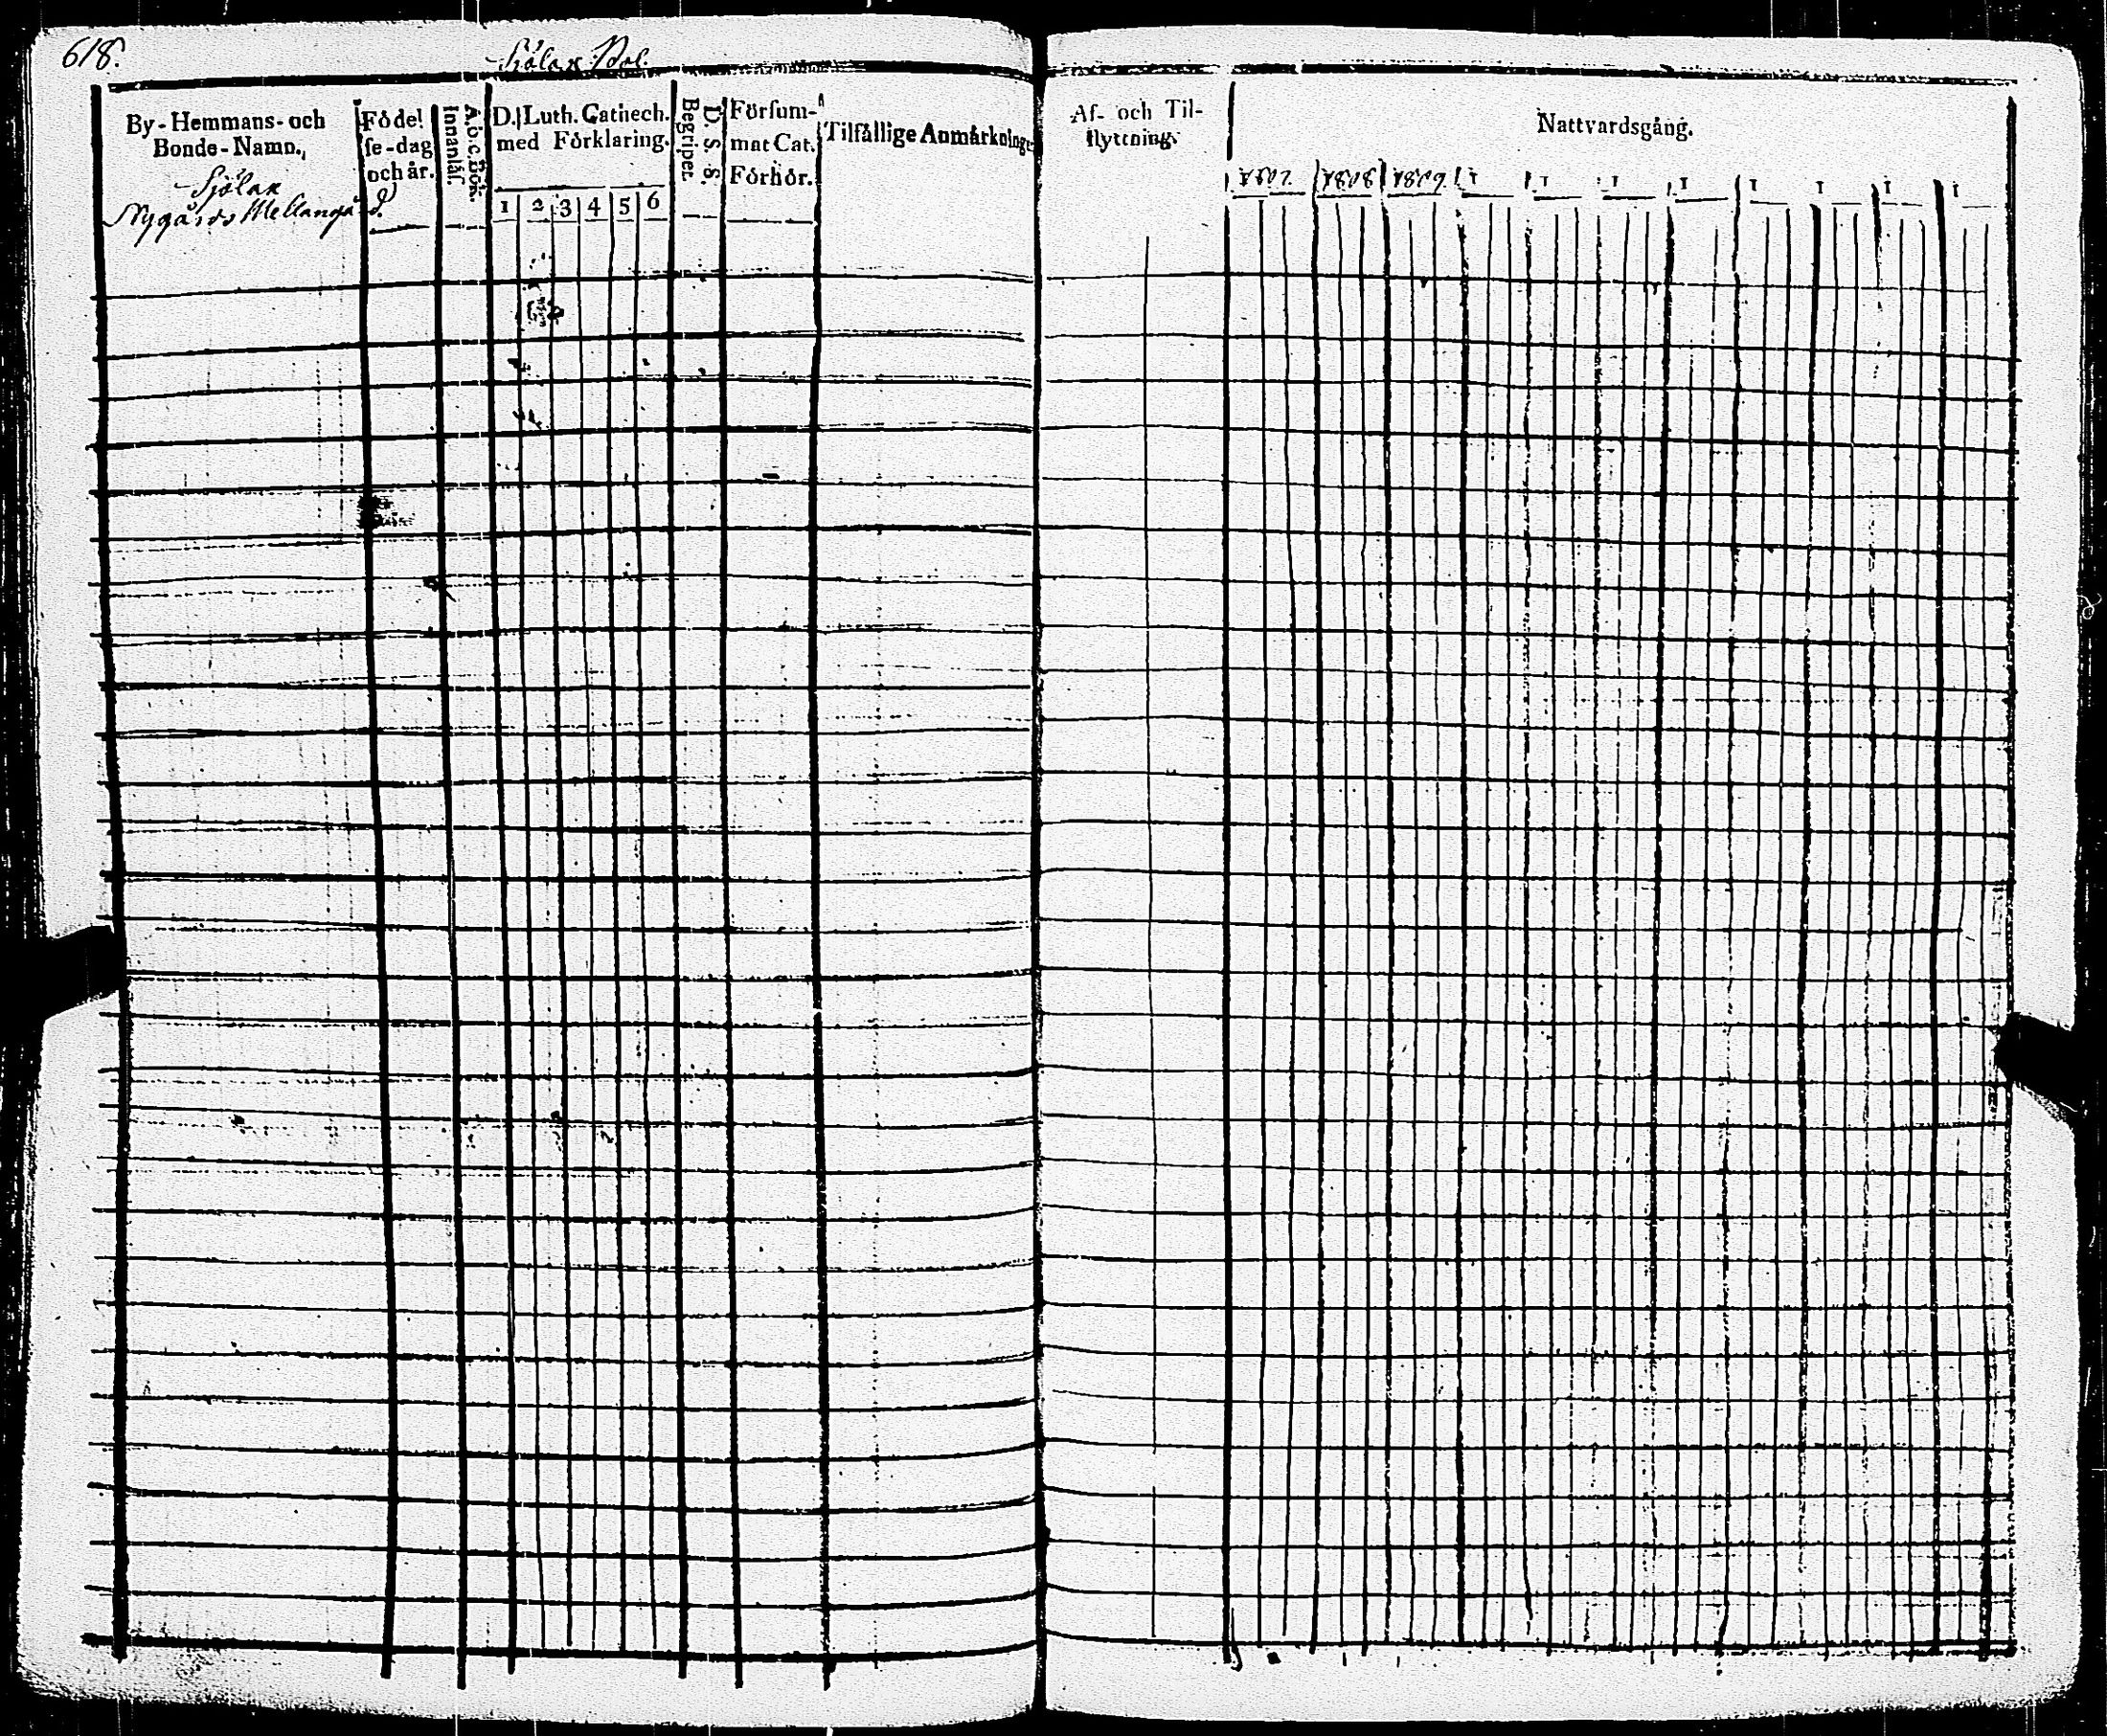 618.
Sjölax Bol.
By-Hemmans- och
Bonde-Namn.
Sjölax
Nygårds Mellangård.
Födel
se-dag
och år.
A. b. c. Bok.
Innanläs.
D. Luth. Cathech.
med Förklaring.
1 2 3 4 5 6
D. S. S.
Begriper.
Försum-
mat Cat.
Förhör.
Tilfällige Anmärkningar
Af- och Til-
flyttning.
Nattvardsgång.
1807. 1808 1809. 1 1 1 1 1 1 1 1